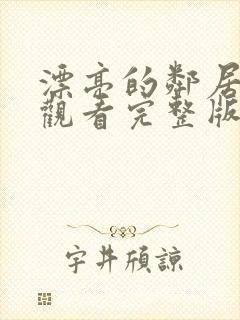 漂亮的鄰居
觀看完整版
宇井頎諒